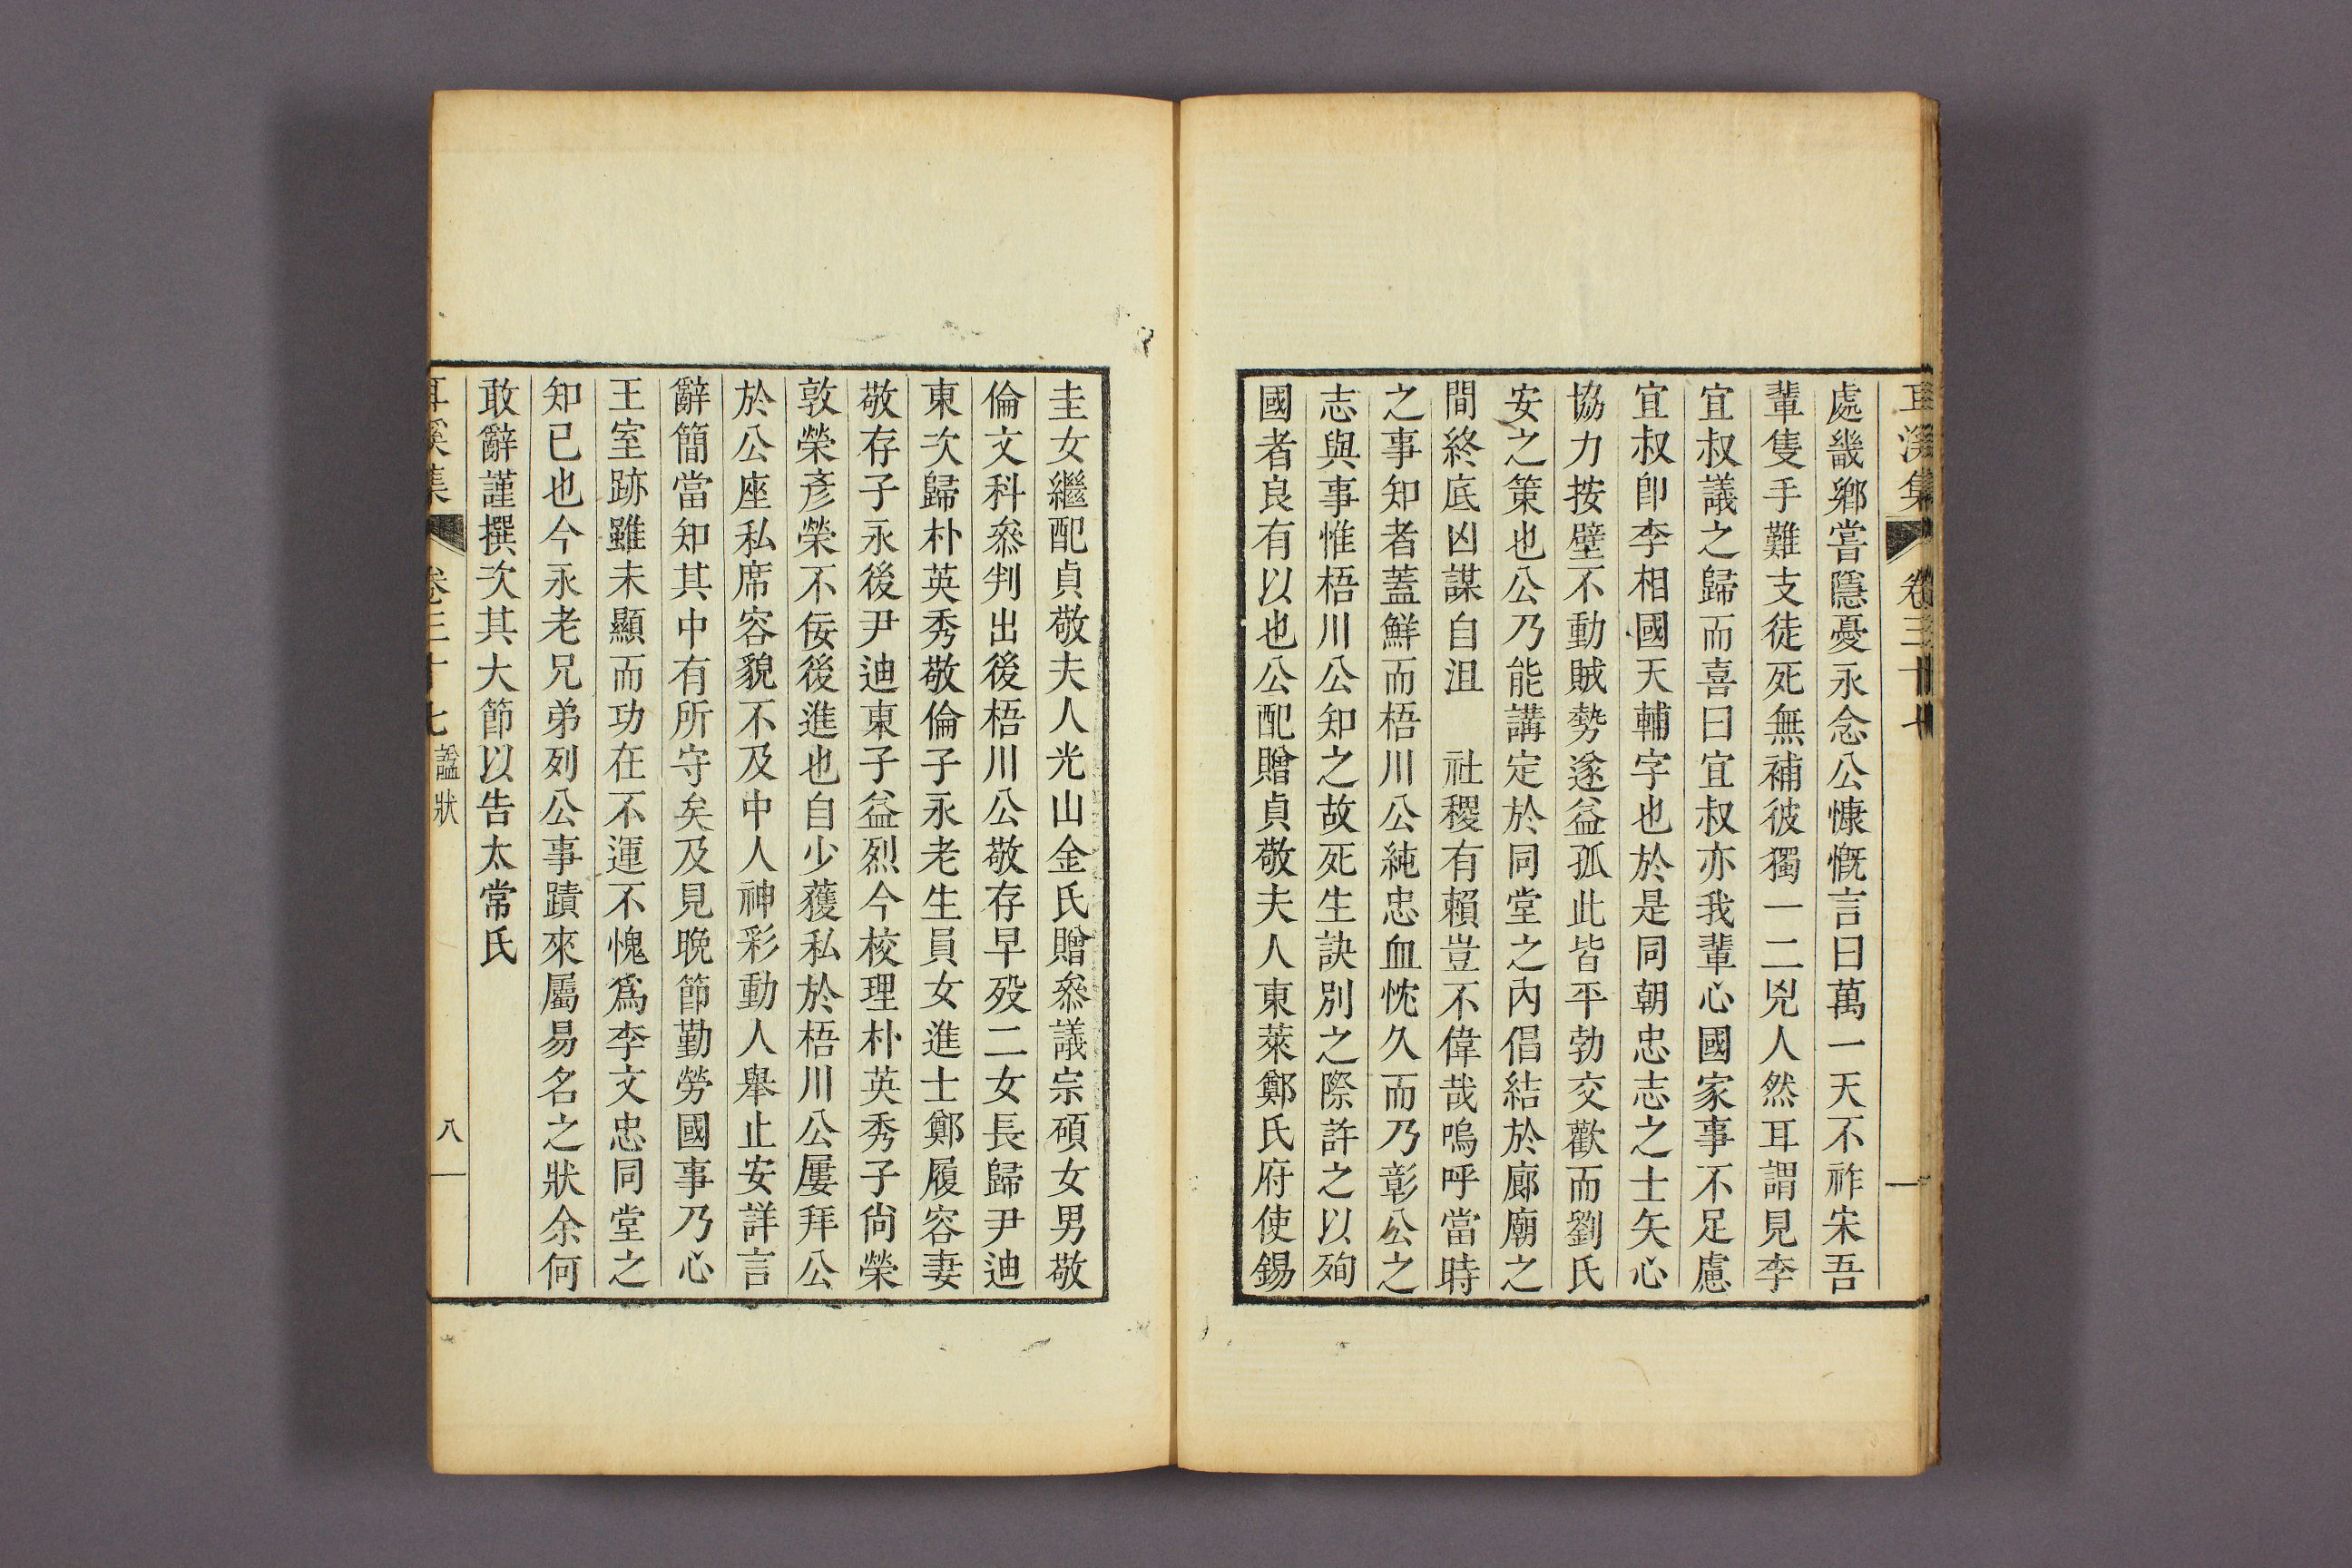 耳溪集 卷三十七
處畿鄉嘗隱憂永念公慷慨言曰萬一天不祚宋吾
輩隻手難支徒死無補彼獨一二兇人然耳謂見李
宜叔議之歸而喜曰宜叔亦我輩心國家事不足慮
宜叔卽李相國天輔字也於是同朝忠志之士矢心
協力按壁不動賊勢遂益孤此皆平勃交歡而劉氏
安之策也公乃能講定於同堂之內倡結於廊廟之
間終底凶謀自沮 社稷有賴豈不偉哉嗚呼當時
之事知者蓋鮮而梧川公純忠血忱久而乃彰公之
志與事惟梧川公知之故死生訣別之際許之以殉
國者良有以也公配贈貞敬夫人東萊鄭氏府使錫
圭女繼配貞敬夫人光山金氏贈叅議宗碩女男敬
倫文科叅判出後梧川公敬存早歿二女長歸尹迪
東次歸朴英秀敬倫子永老生員女進士鄭履容妻
敬存子永後尹迪東子益烈今校理朴英秀子尙榮
敦榮彥榮不佞後進也自少獲私於梧川公屢拜公
於公座私席容貌不及中人神彩動人舉止安詳言
辭簡當知其中有所守矣及見晚節勤勞國事乃心
王室跡雖未顯而功在不運不愧爲李文忠同堂之
知已也今永老兄弟列公事蹟來屬易名之狀余何
敢辭謹撰次其大節以告太常氏
耳溪集 卷三十七 諡狀 八